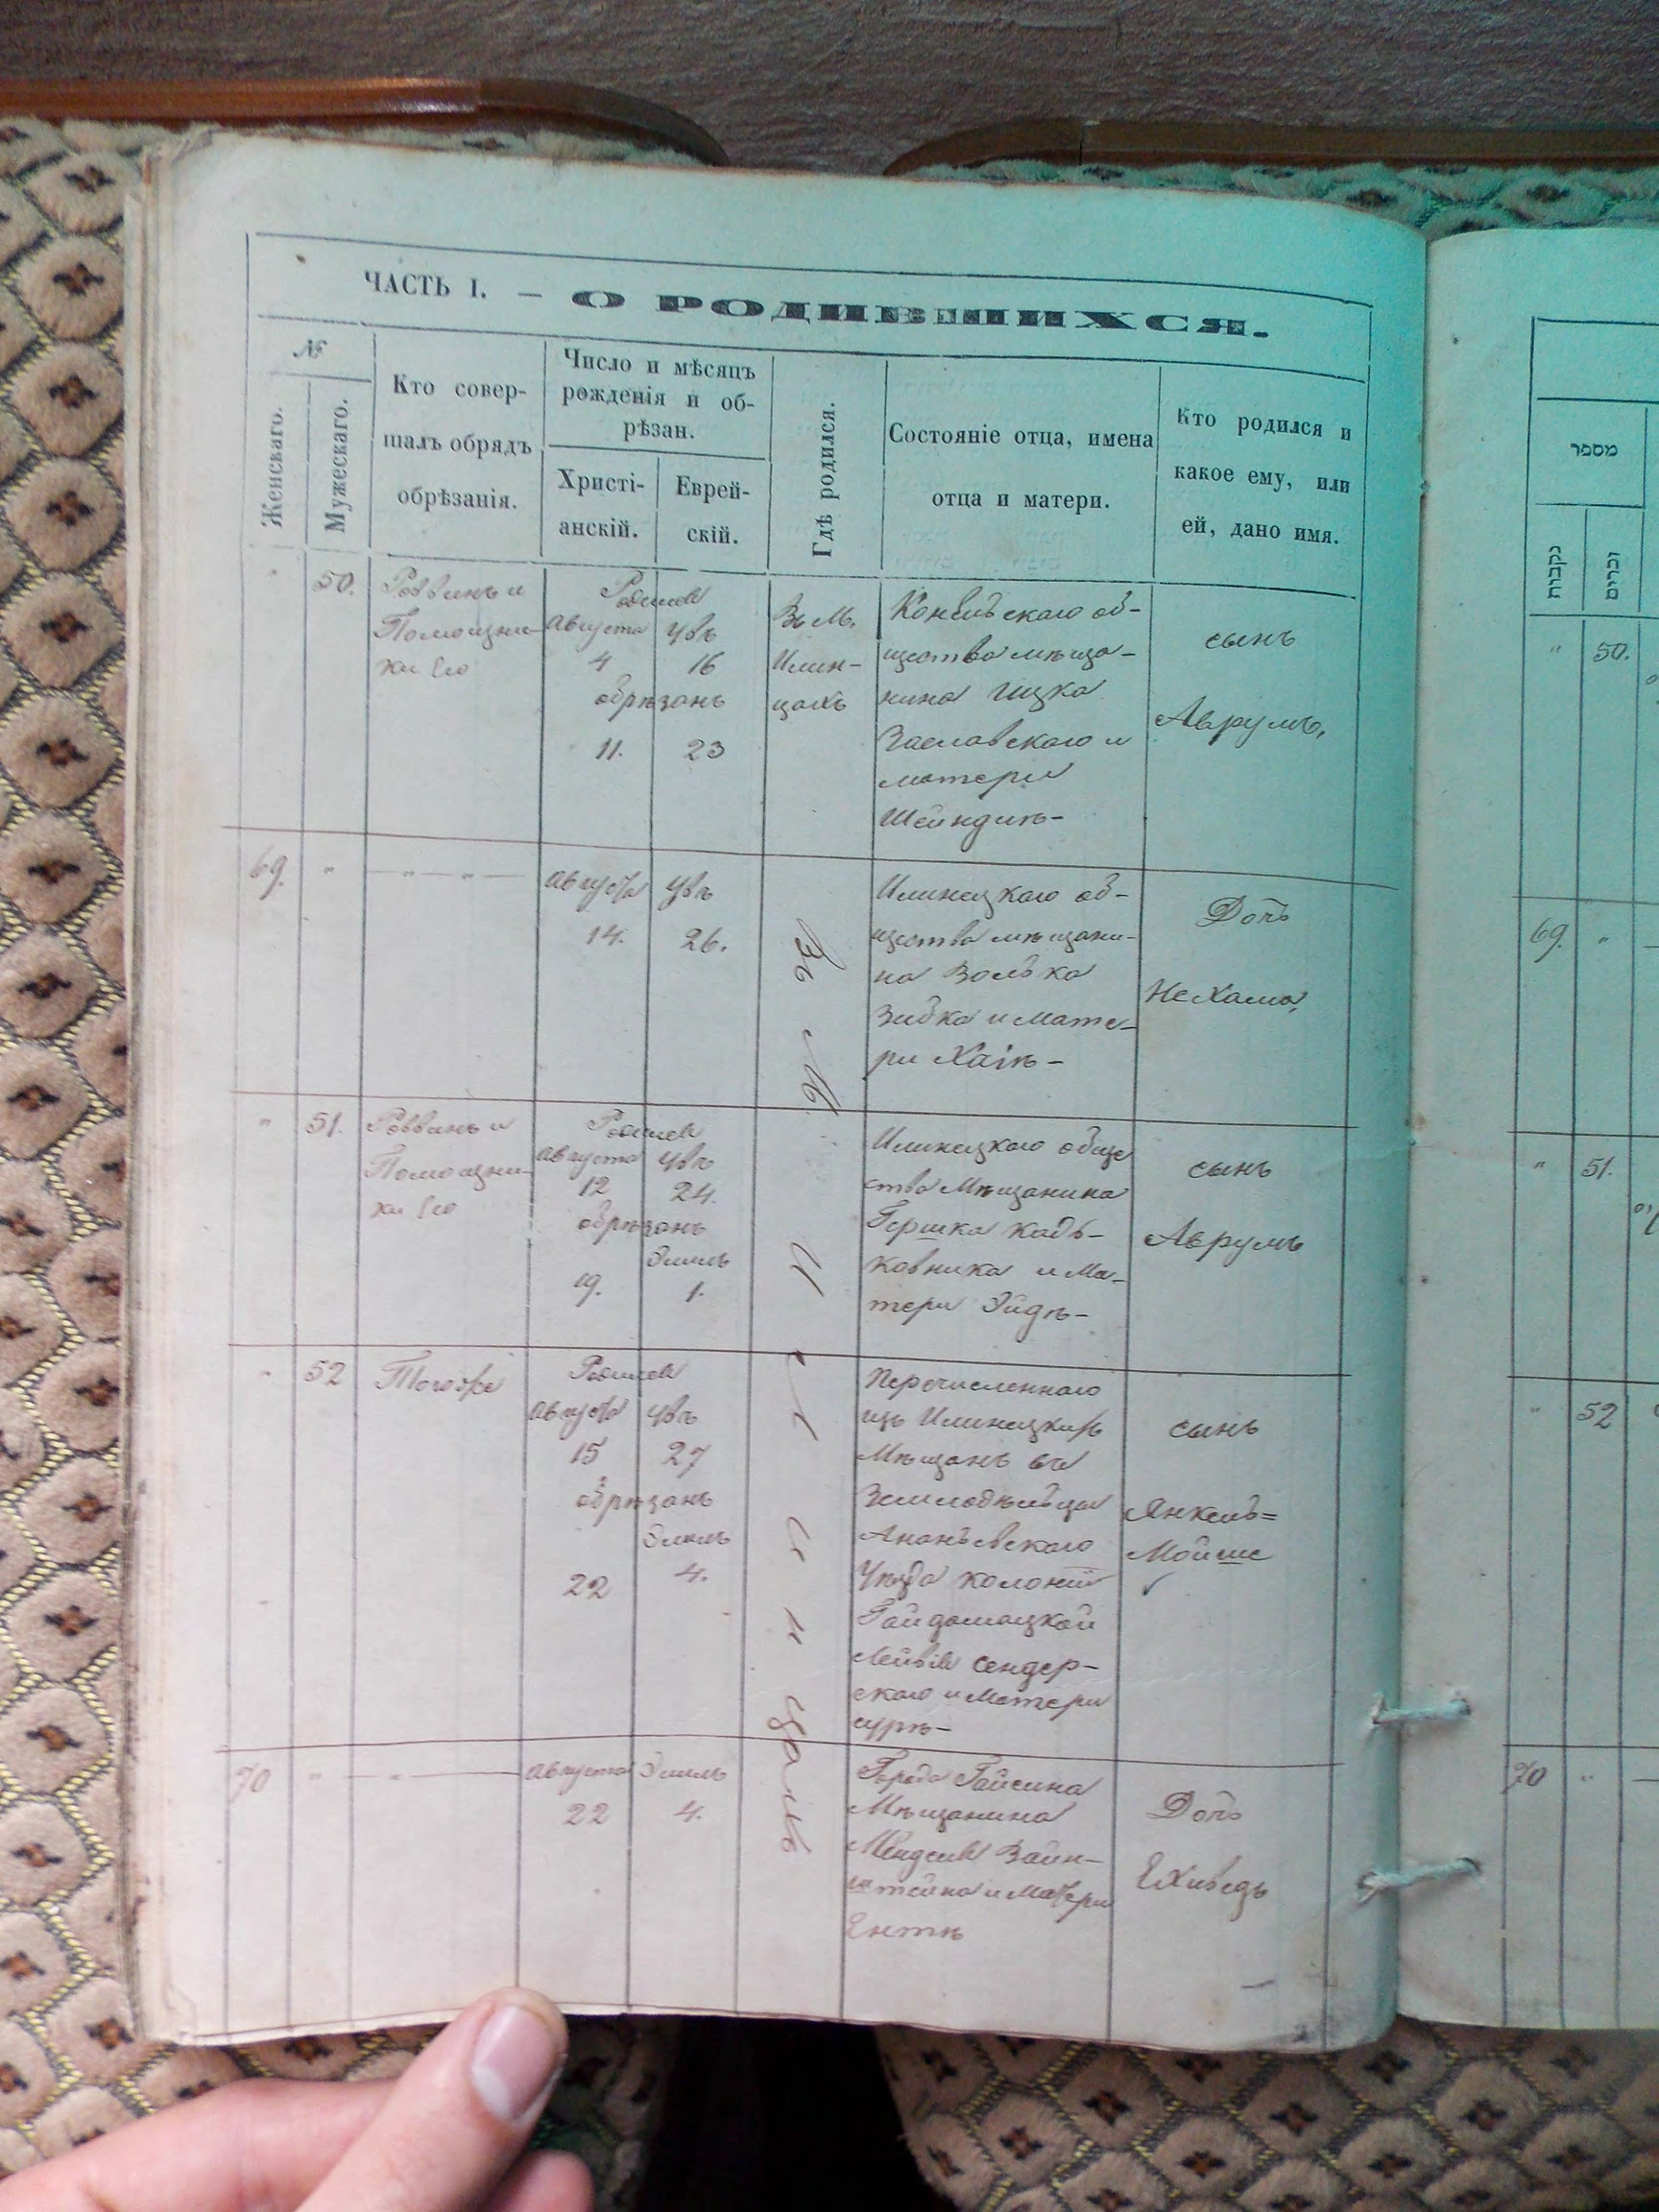 ЧАСТЬ I. — О РОДИВШИХСЯ.
№
Женскаго.
Мужескаго.
Кто совер-
шалъ обрядъ
обрѣзанія.
Число и мѣсяцъ
рожденія и об-
рѣзан.
Христі-
анскій.
Еврей-
скій.
Гдѣ родился.
Состояніе отца, имена
отца и матери.
Кто родился и
какое ему, или
ей, дано имя.
" 50.
Раввинъ и
Помощни-
ки Его
Родился
августа
4
16
обрѣзанъ
11. 23
Въ М.
Илин-
цахъ
общества мѣща-
нина Ицка
Заславскаго и
матери
Шейндлѣ—
сынъ
Аврумъ,
69. " — " — " —
августа
14. 26.
Илинецкаго об-
щества мѣщани-
на Волька
Зибка и мате-
ри Хаіѣ—
Дочь
Нехама,
" 51.
Раввинъ и
Помощни-
ки Его
Родился
августа
12 24.
обрѣзанъ
Элиль
19. 1.
Илинецкаго обще
ства Мѣщанина
Гершка Кадь-
ковника и Ма-
тери Эйдѣ—
сынъ
Аврумъ
" 52
Тогоже
Родился
августа
15 27
обрѣзанъ
Элиль
22 4.
Перечисленнаго
изъ Илинецкихъ
Мѣщанъ въ
Земледѣльцы
Ананьевскаго
Уѣзда колоніи
Гайдамацкой
Лейвія Сендер-
скаго и Матери
Сурѣ—
сынъ
Янкель=
Мойше
70 " — " —
августа Элиль
22 4.
Города Гайсина
Мѣщанина
Менделя Вайн-
штейна и Матери
Ентѣ
Дочь
Ехиведъ
Въ М. Илинцахъ
מספר
נקבות
זכרים
" 50.
69. "
" 51.
" 52
70 "